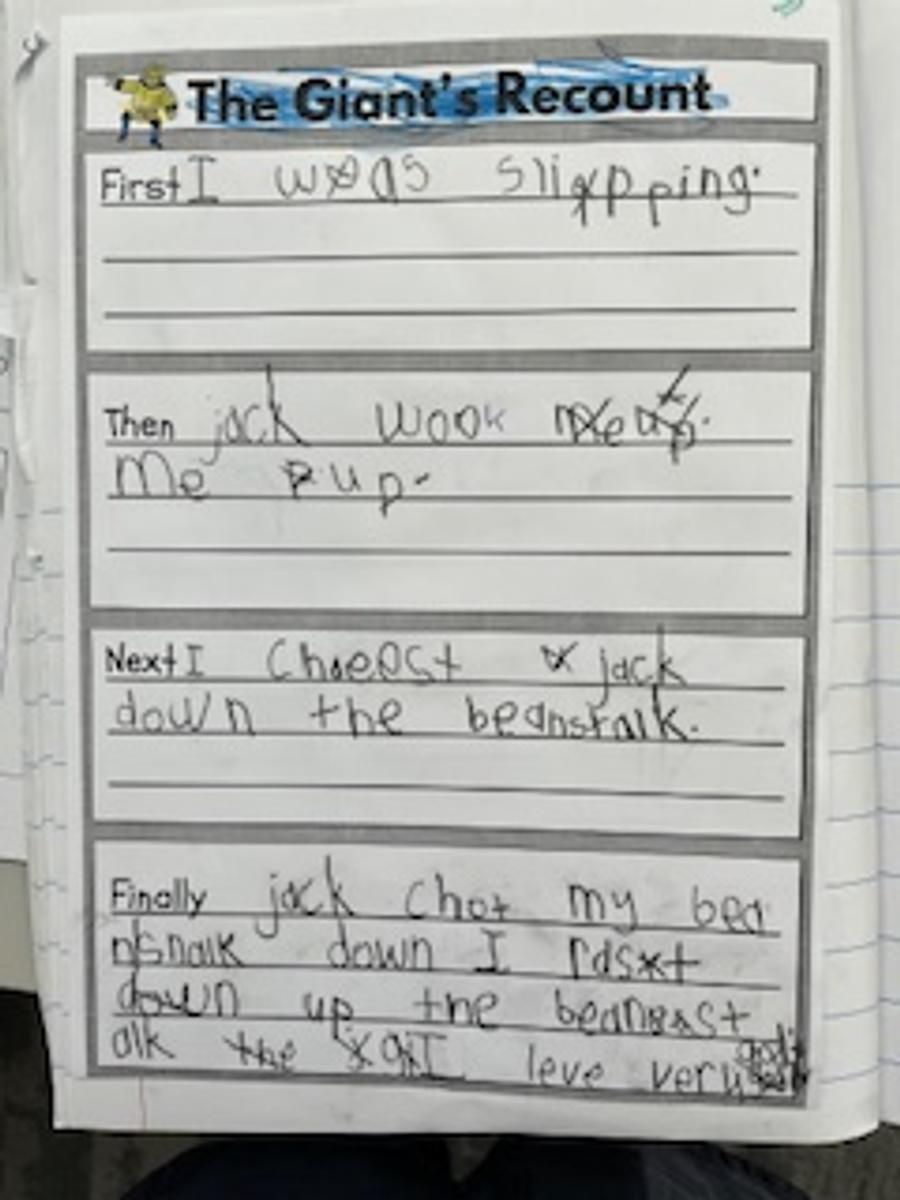 The Giant's Recount
First I was slipping.
Then jack wook
me up.
Next I Cheest jack
down the beanstalk.
Finally jack Chot my bea
nsnalk down I rast
down up the beanast
alk the I leve very